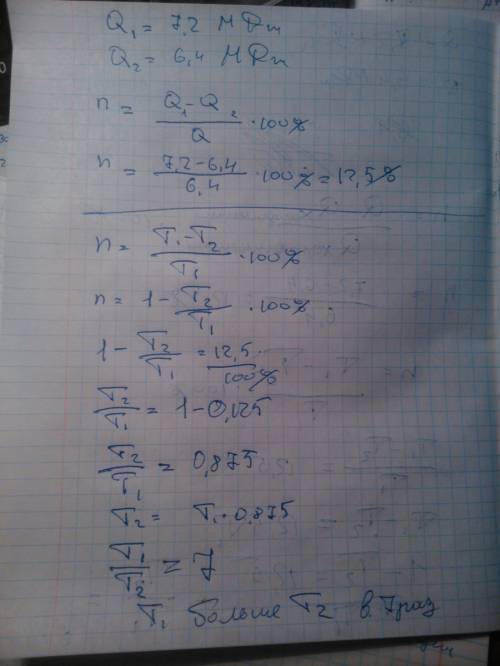 Q₁ = 7,2 МДж
Q₂ = 6,4 МДж
n = (Q₁-Q₂)/Q · 100%
n = (7,2-6,4)/6,4 · 100% = 12,5%
n = (T₁-T₂)/T₁ · 100%
n = 1 - T₂/T₁ · 100%
1 - T₂/T₁ = 12,5/100%
T₂/T₁ = 1-0,125
T₂/T₁ = 0,875
T₂ = T₁·0,875
T₁/T₂ = 7
T₁ больше T₂ в 7 раз